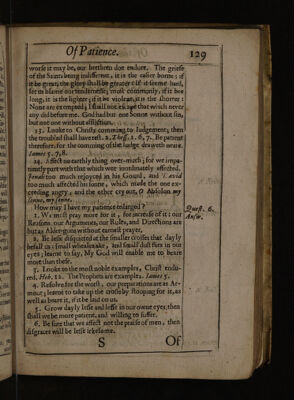 Of Patience.
129
worse it may be, our brethren doe endure. The griefe
of the Saints being indifferent, it is the easier borne; if
it be great, the glory shall be greater: if it seeme hard,
let us blame our tendernesse; most commonly, if it bee
long, it is the lighter; if it be violent, it is the shorter:
None are exempted; I shall not escape that which never
any did before me. God had but one Sonne without sin,
but not one without affliction.
13. Looke to Christs comming to Judgement; then
the troubled shall have rest. 2. Thess. 1. 6, 7. Be patient
therefore, for the comming of the Judge draweth neare.
James 5. 7, 8.
14. Affect no earthly thing over-much; for we impa-
tiently part with that which wee inordinately affected.
Jonah too much rejoyced in his Gourd, and David
too much affected his sonne, which made the one ex-
ceeding angry, and the other cry out, O Absolom my
sonne, my sonne.
How may I have my patience enlarged?
Quest. 6.
1. We must pray more for it, for increase of it: our
Answ.
Reasons, our Arguments, our Rules, and Directions are
but as Alder-guns without earnest prayer.
2. Be lesse disquieted at the smaller crosses that dayly
befall us: small wheeles take, and small dust stirs in our
eyes; learne to say, My God will enable me to beare
more than these.
3. Looke to the most noble examples, Christ endu-
red, Heb. 12. The Prophets are examples. James 5.
4. Resolve for the worst, our preparations are as Ar-
mour; learne to take up the crosse by stooping for it, as
well as beare it, if it be laid on us.
5. Grow dayly lesse and lesse in our owne eyes, then
shall we be more patient, and willing to suffer.
6. Be sure that we affect not the praise of men, then
disgraces will be lesse irkesome.
S
Of